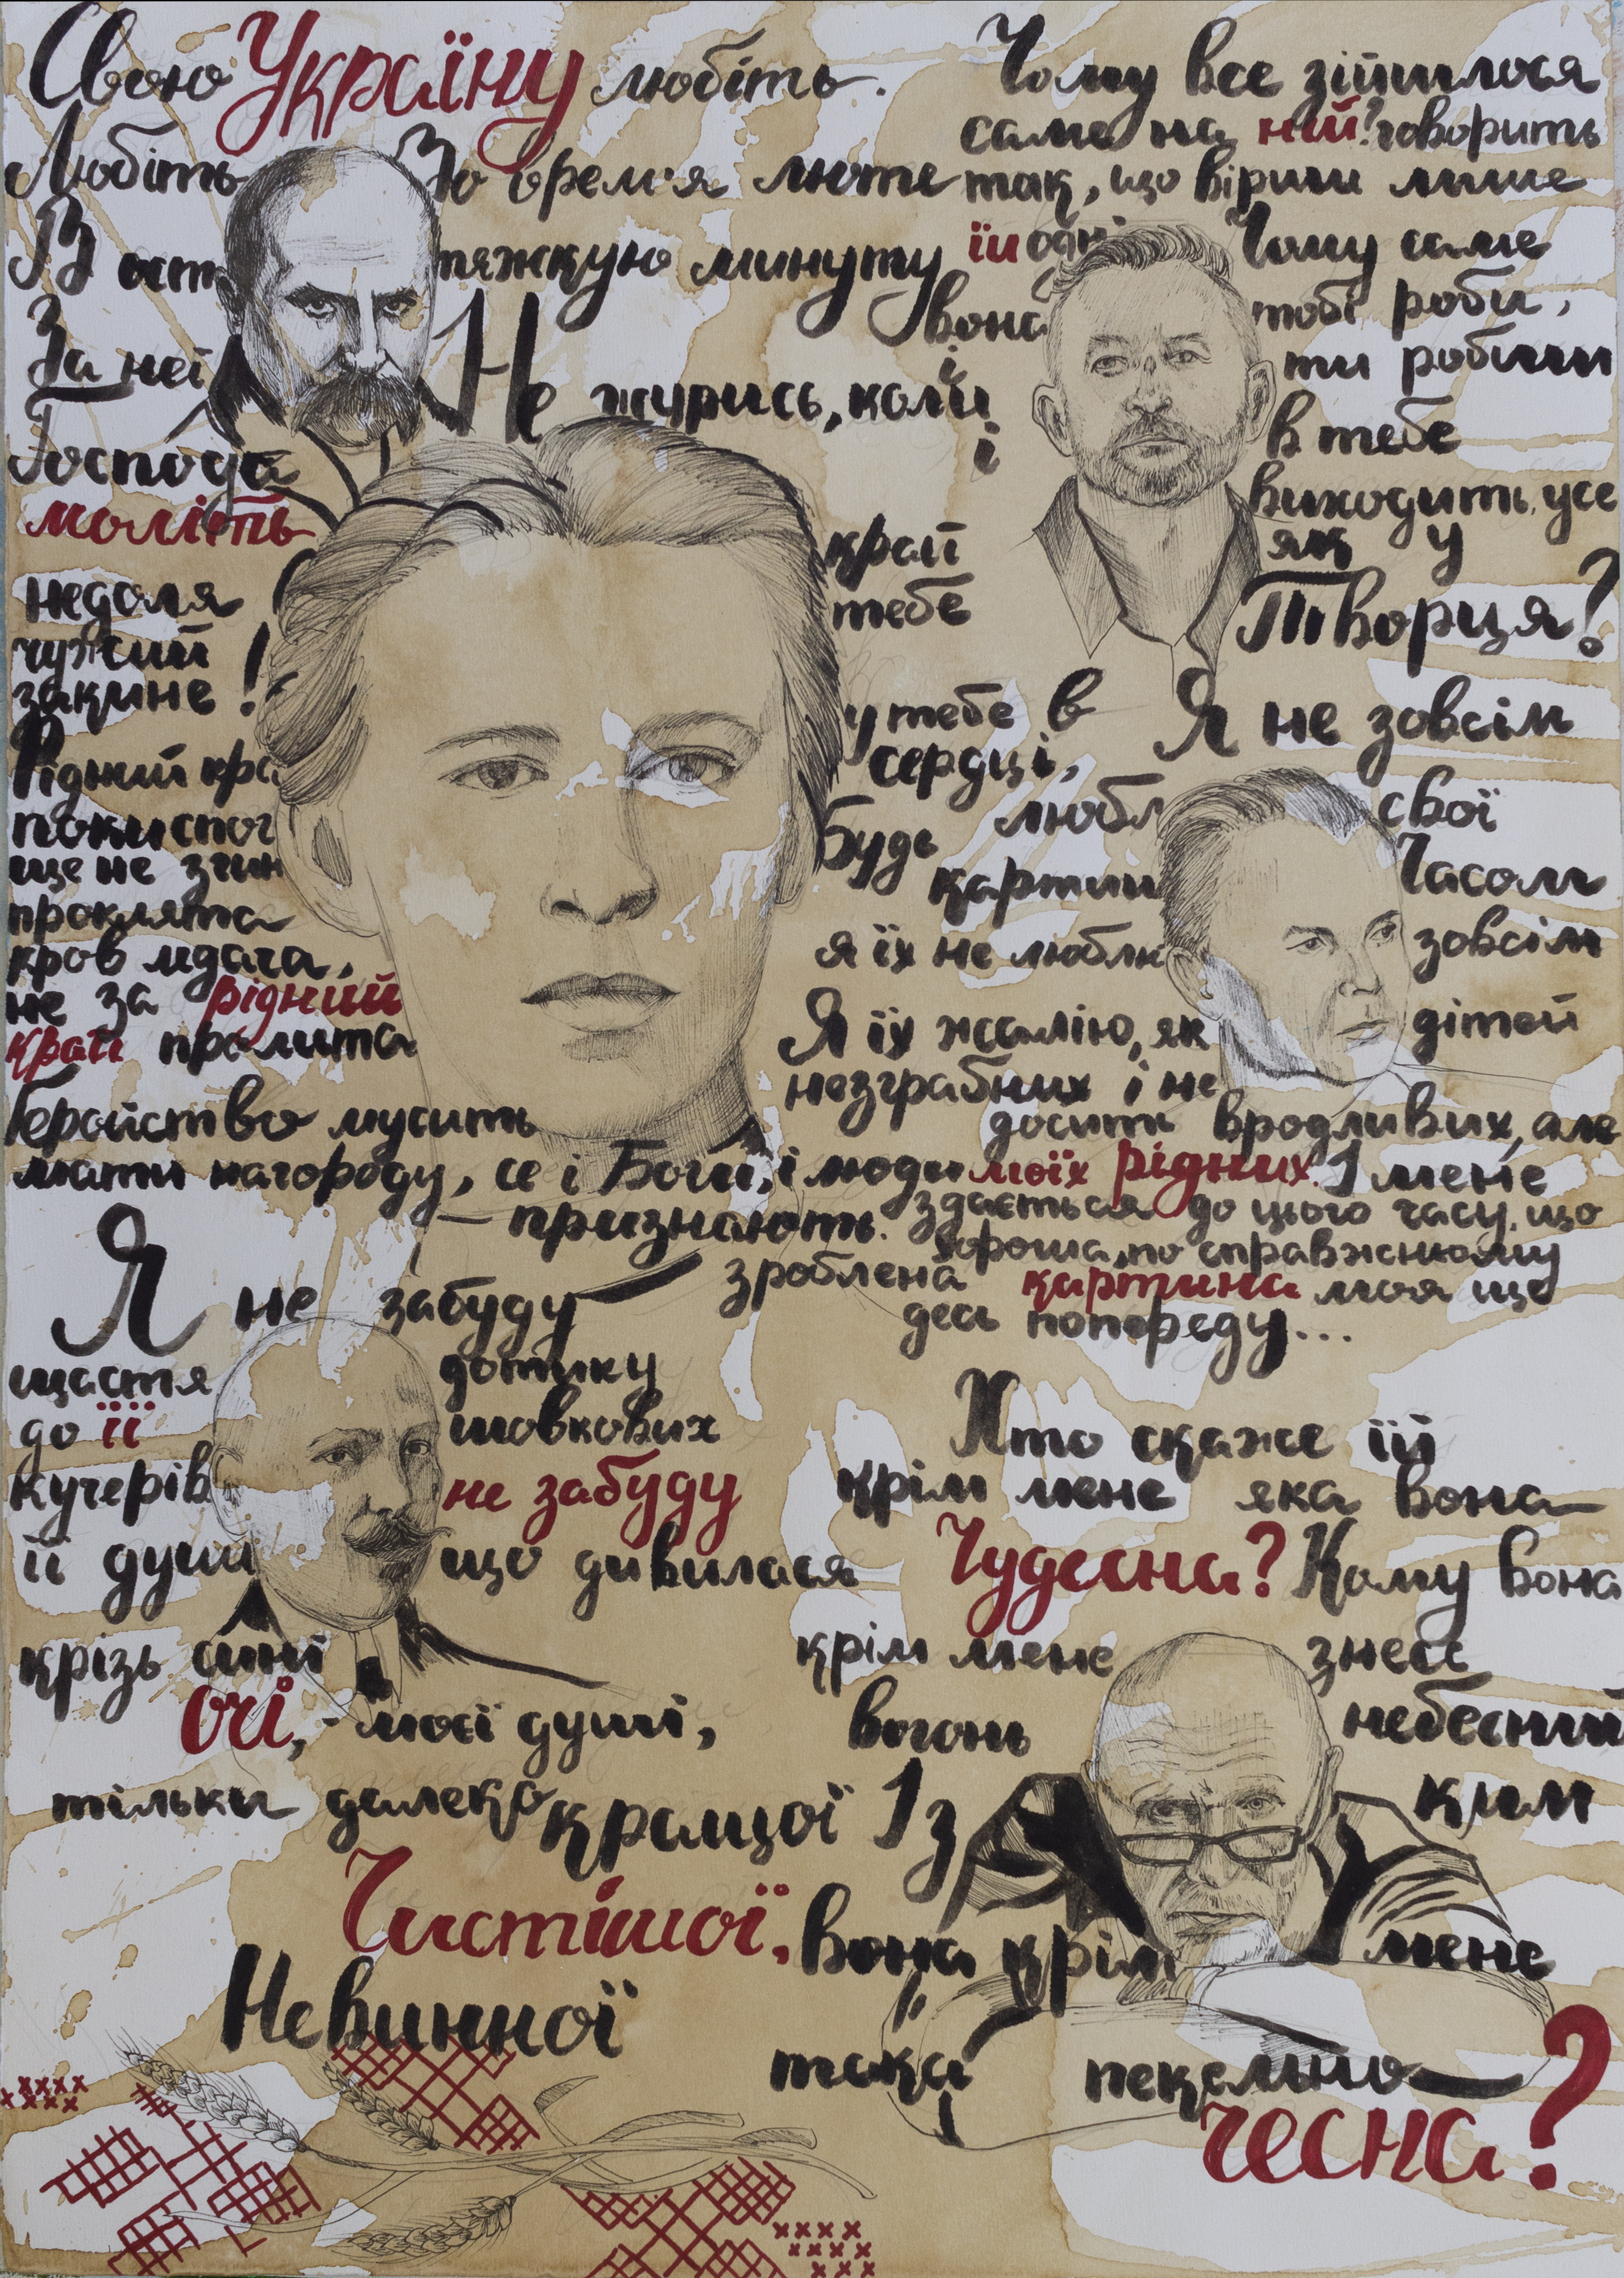 Свою Україну любіть.
Любіть
Во время люте
В ост
тяжкую минуту
За неї
Господа
моліть
Чому все зійшлося
саме на ній? говорить
так, що вірши лише
їй одні
Чому саме
вона
тобі роби,
і
ти робиш
і
в тебе
виходить усе
як у
Творця?
Не журись, коли
недоля
край
чужий
тебе
закине!
Рідний кра
у тебе в
сердці,
поки спог
Будь
ще не згин
проклята
кров ледача,
не за рідний
край пролита
Геройство мусить
мати нагороду, се і Боги, і люди
– признають.
Я не зовсім
любл
свої
картин
Часом
я їх не люблю
зовсім
Я їх жалію, як
дітей
незграбних і не
досить вродливих, але
моїх рідних. І мене
здається до цього часу, що
хороша, по справжньому
зроблена картина моя ще
десь попереду...
Я не забуду
щастя
дотику
до її
шовкових
кучерів
не забуду
її душі
що дивилася
крізь сині
очі, - моєї душі,
тільки далеко кращої
Чистішої,
Невинної
Хто скаже їй
крім мене яка вона
Чудесна? Кому вона
крім мене
знесе
вогонь
небесний
Із
ким
вона крім
мене
така
пекельно
чесна?